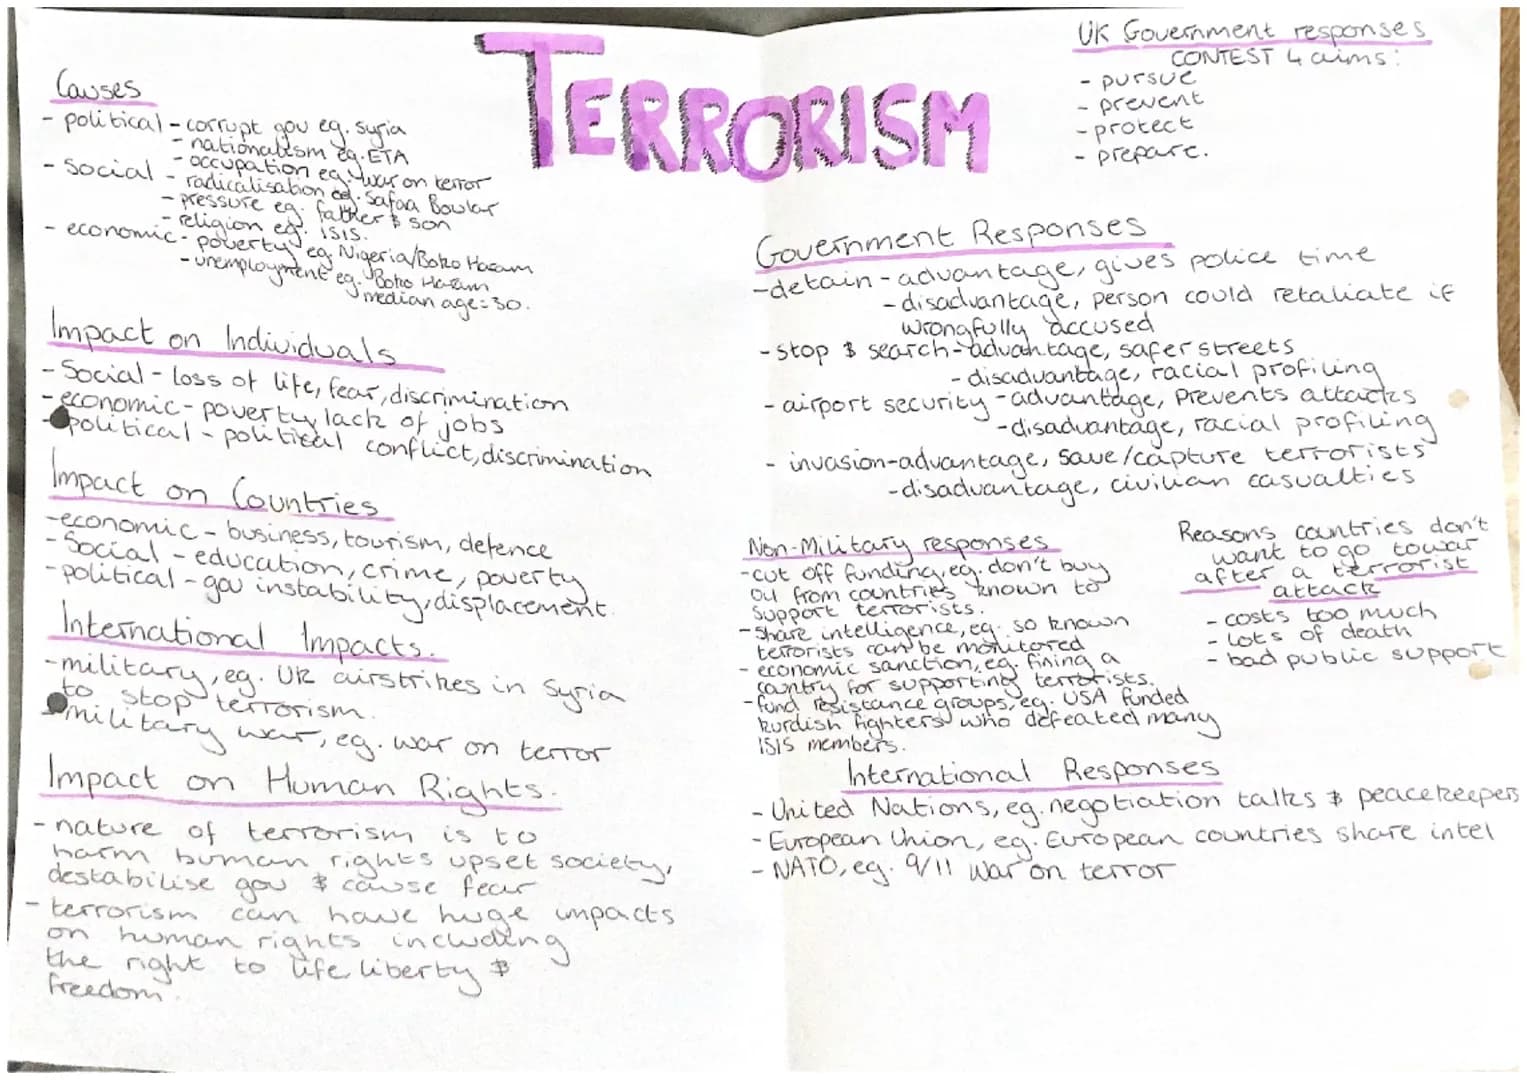 TERRORISM
Causes
- political - corrupt gov eg. Syria
- nationalism eg. ETA
- occupation eg. war on terror
- social - radicalisation eg. Safaa Boular
- pressure eg. father & son
- religion eg. ISIS.
- economic - poverty eg. Nigeria/Boko Haram
- unemployment eg. Boko Haram
median age=30.
Impact on Individuals
- Social - loss of life, fear, discrimination
- economic - poverty, lack of jobs
- political - political conflict, discrimination
Impact on Countries
- economic - business, tourism, defence
- Social - education, crime, poverty
- political - gov instability, displacement.
International Impacts.
- military, eg. UK airstrikes in Syria
to stop terrorism.
military war, eg. war on terror
Impact on Human Rights.
- nature of terrorism is to
harm human rights upset society,
destabilise gov & cause fear
- terrorism can have huge impacts
on human rights including
the right to life liberty &
freedom.
UK Government responses
CONTEST 4 aims:
- pursue
- prevent
- protect
- prepare.
Government Responses
- detain - advantage, gives police time
- disadvantage, person could retaliate if
wrongfully accused
- stop & search - advantage, safer streets
- disadvantage, racial profiling
- airport security - advantage, prevents attacks
- disadvantage, racial profiling
- invasion - advantage, save/capture terrorists
- disadvantage, civilian casualties
Non-Military responses
- cut off funding, eg. don't buy
oil from countries known to
support terrorists.
- share intelligence, eg. so known
terrorists can be monitored
- economic sanction, eg. fining a
country for supporting terrorists.
- fund resistance groups, eg. USA funded
kurdish fighters who defeated many
ISIS members.
Reasons countries don't
want to go to war
after a terrorist
attack
- costs too much
- lots of death
- bad public support
International Responses
- United Nations, eg. negotiation talks & peacekeepers
- European Union, eg. European countries share intel
- NATO, eg. 9/11 war on terror